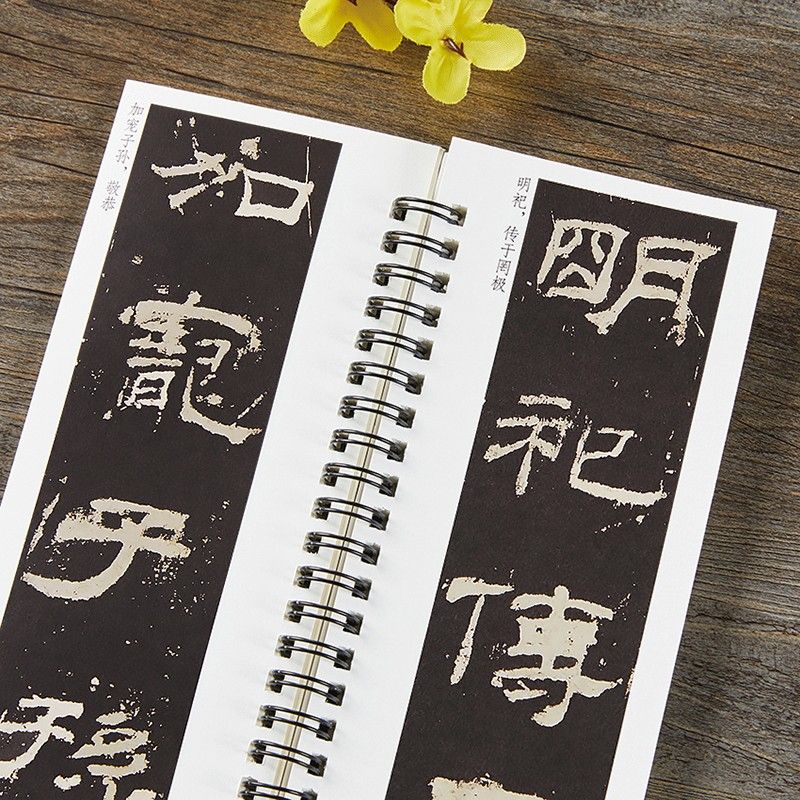 加宠子孙，敬恭
加寵子孫
明祀，传于罔极
明祀傳